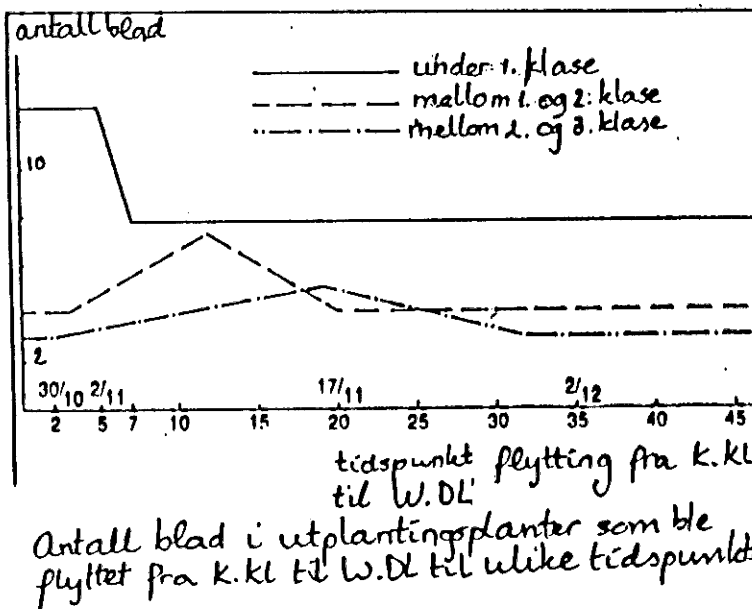 antall blad
under 1. klase
mellom 1. og 2. klase
mellom 2. og 3. klase
10
2
30/10 2/11 17/11 2/12
2 5 7 10 15 20 25 30 35 40 45
tidspunkt flytting fra K.KL
til W.DL
Antall blad i utplantingsplanter som ble
flyttet fra K.KL til W.DL til ulike tidspunkt